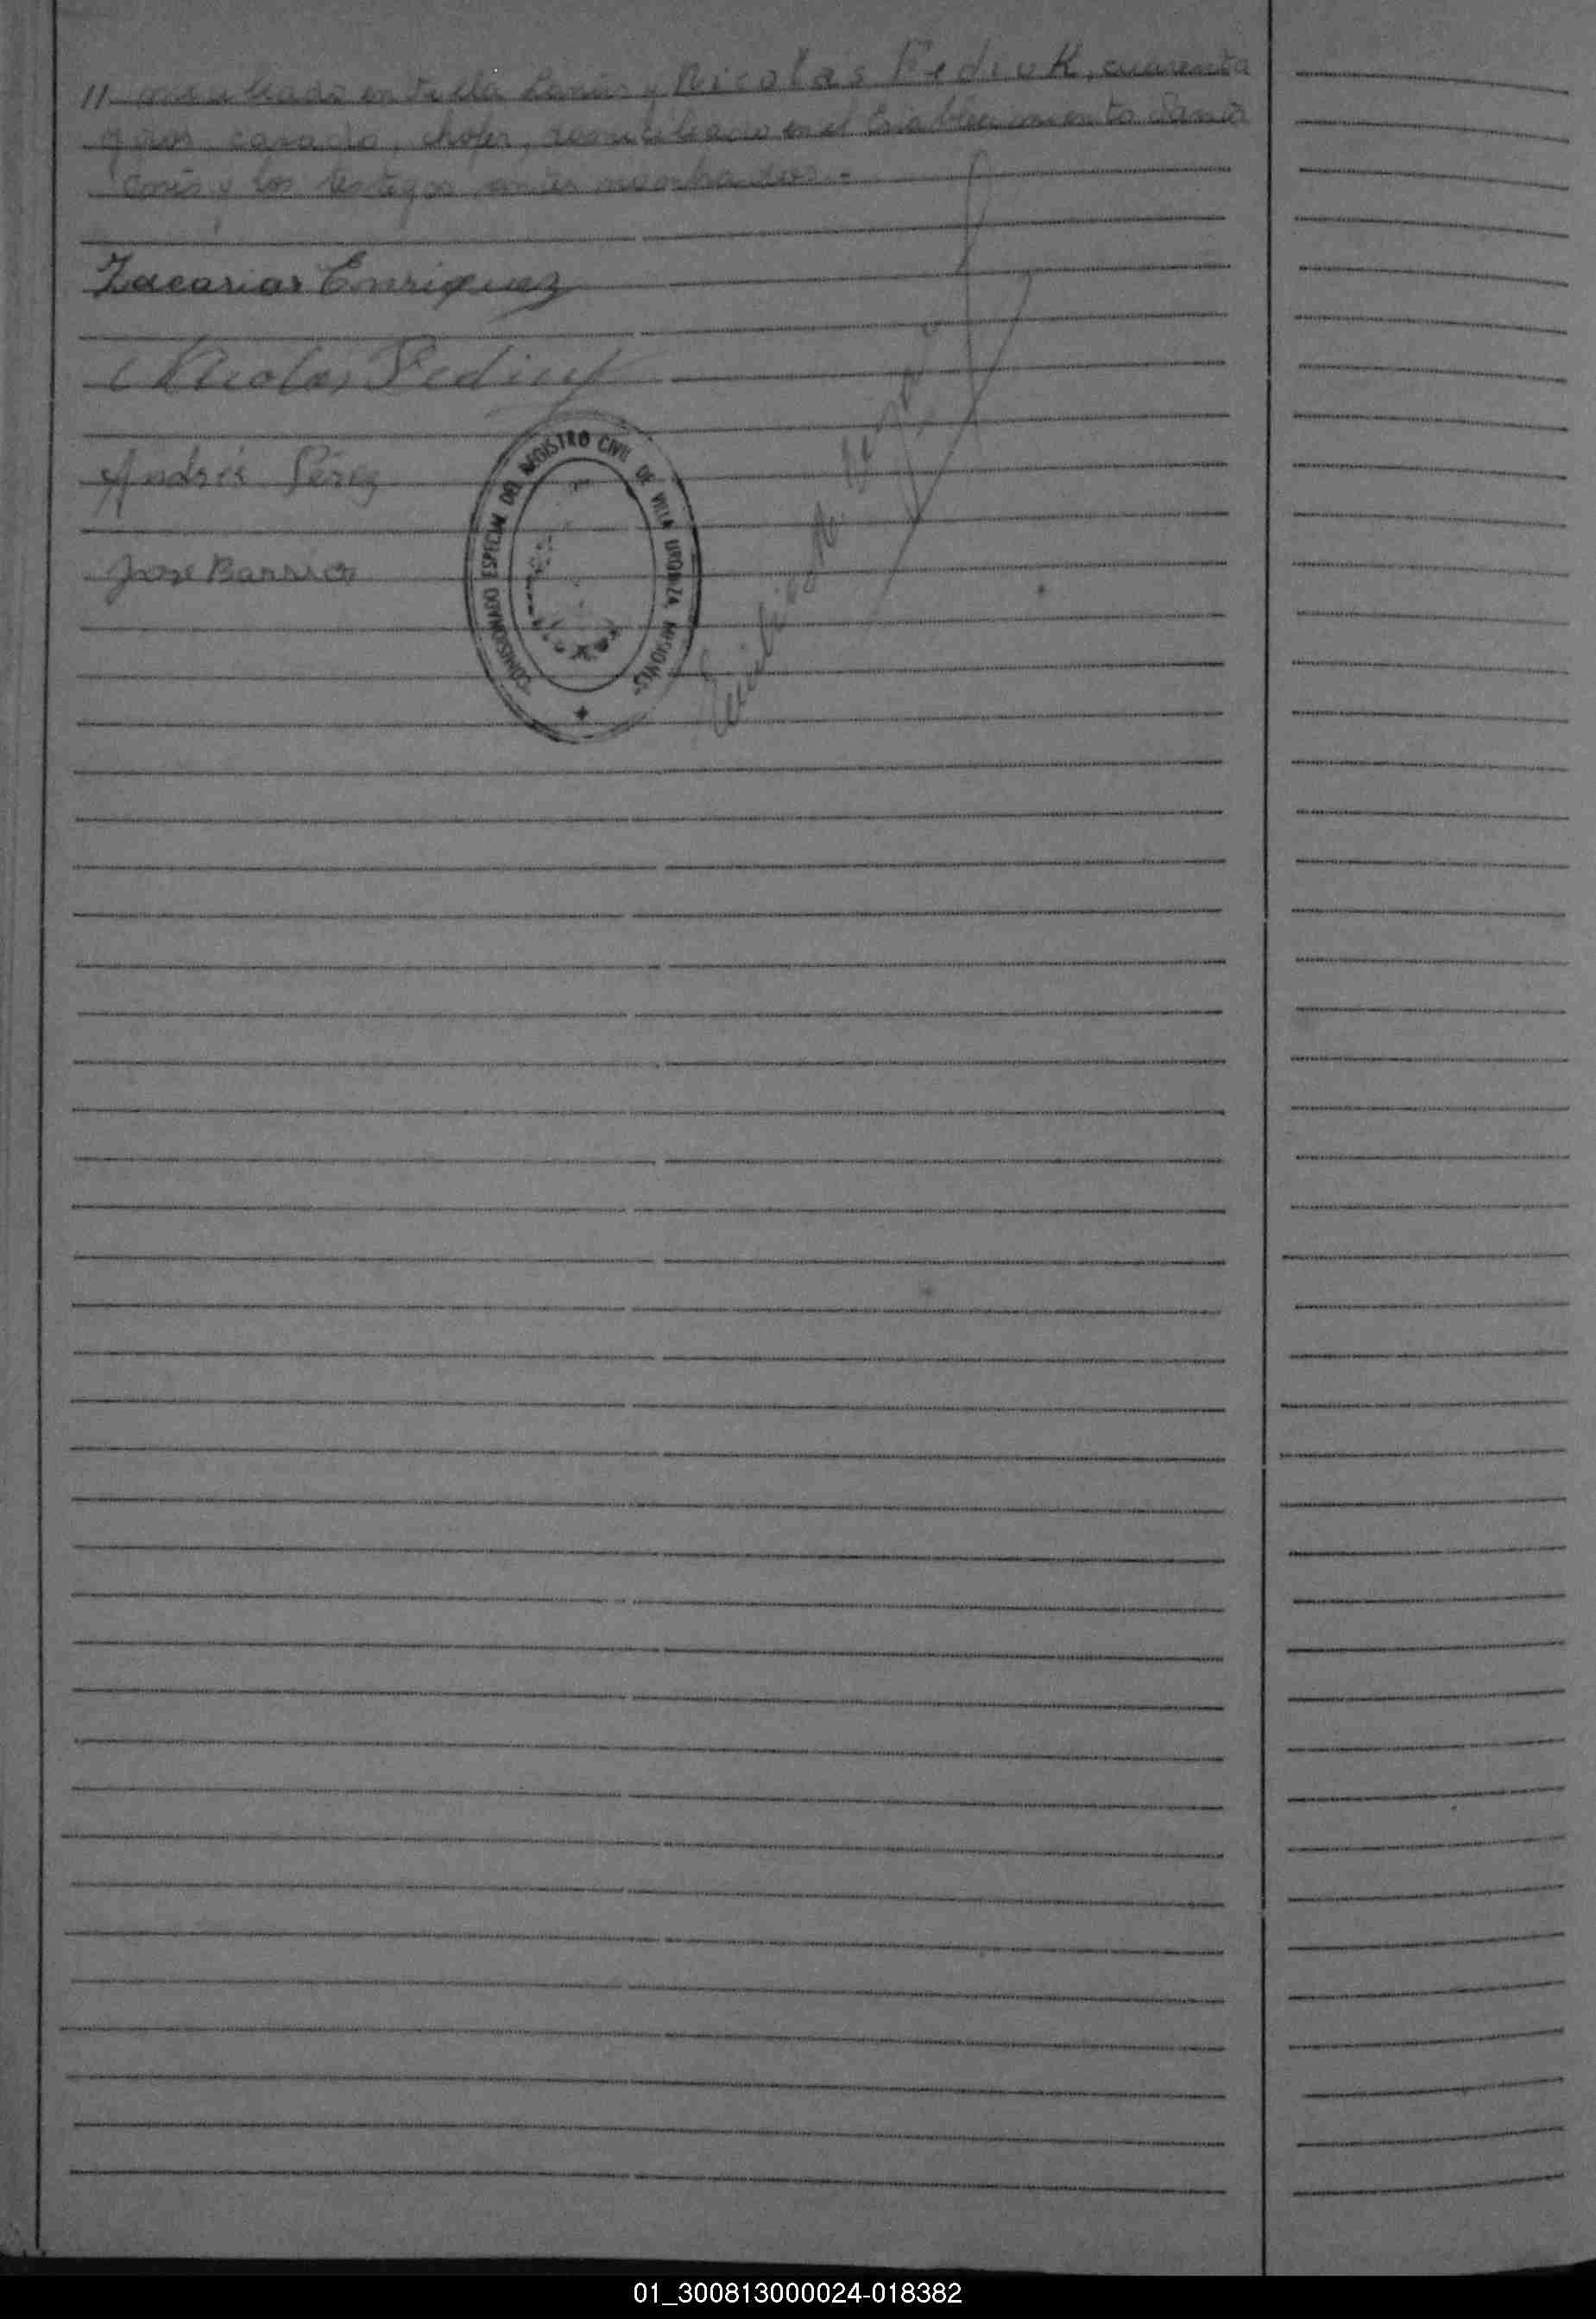 11 en Villa Lanús y Nicolas Fediuk, cuarenta
años, casado, chofer, domiciliado en el Establecimiento
y los testigos antes nombrados.-
Zacarias Enriquez
Nicolas Fediuk
Andrés Pérez
José Barrios
COMISIONADO ESPECIAL DEL REGISTRO CIVIL DE VILLA URQUIZA, MISIONES
01_300813000024-018382